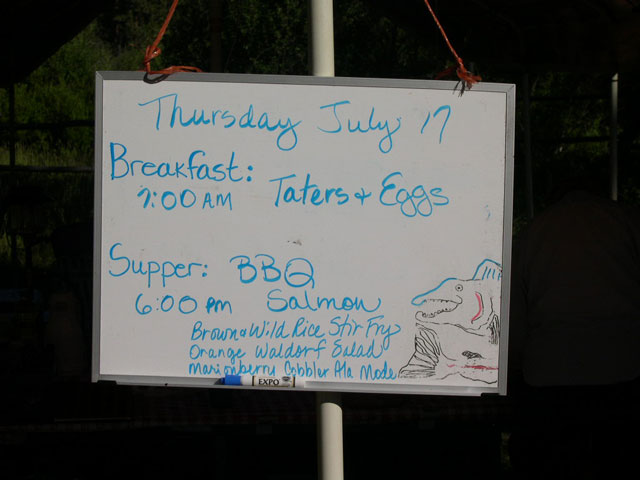 Thursday July 17
Breakfast:
7:00 AM Taters & Eggs
Supper: BBQ
6:00 pm Salmon
Brown & Wild Rice Stir Fry
Orange Waldorf Salad
Marionberry Cobbler Ala Mode
EXPO